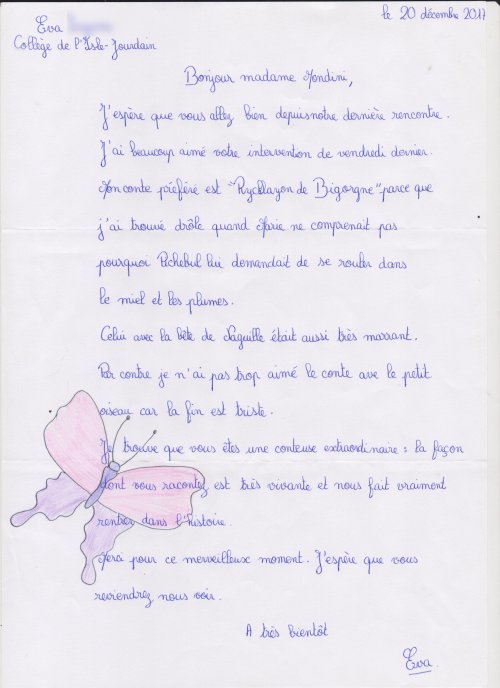 le 20 décembre 2017
Eva
Collège de l'Isle-Jourdain
Bonjour madame Mondini,
J'espère que vous allez bien depuis notre dernière rencontre.
J'ai beaucoup aimé votre intervention de vendredi dernier.
Mon conte préféré est "Rycklayon de Bigorgne" parce que
j'ai trouvé drôle quand Marie ne comprenait pas
pourquoi Pichebul lui demandait de se rouler dans
le miel et les plumes.
Celui avec la bête de Naguille était aussi très marrant.
Par contre je n'ai pas trop aimé le conte ave le petit
oiseau car la fin est triste.
Je trouve que vous êtes une conteuse extraordinaire : la façon
dont vous racontez est très vivante et nous fait vraiment
rentrer dans l'histoire.
Merci pour ce merveilleux moment. J'espère que vous
reviendrez nous voir.
A très bientôt
Eva.